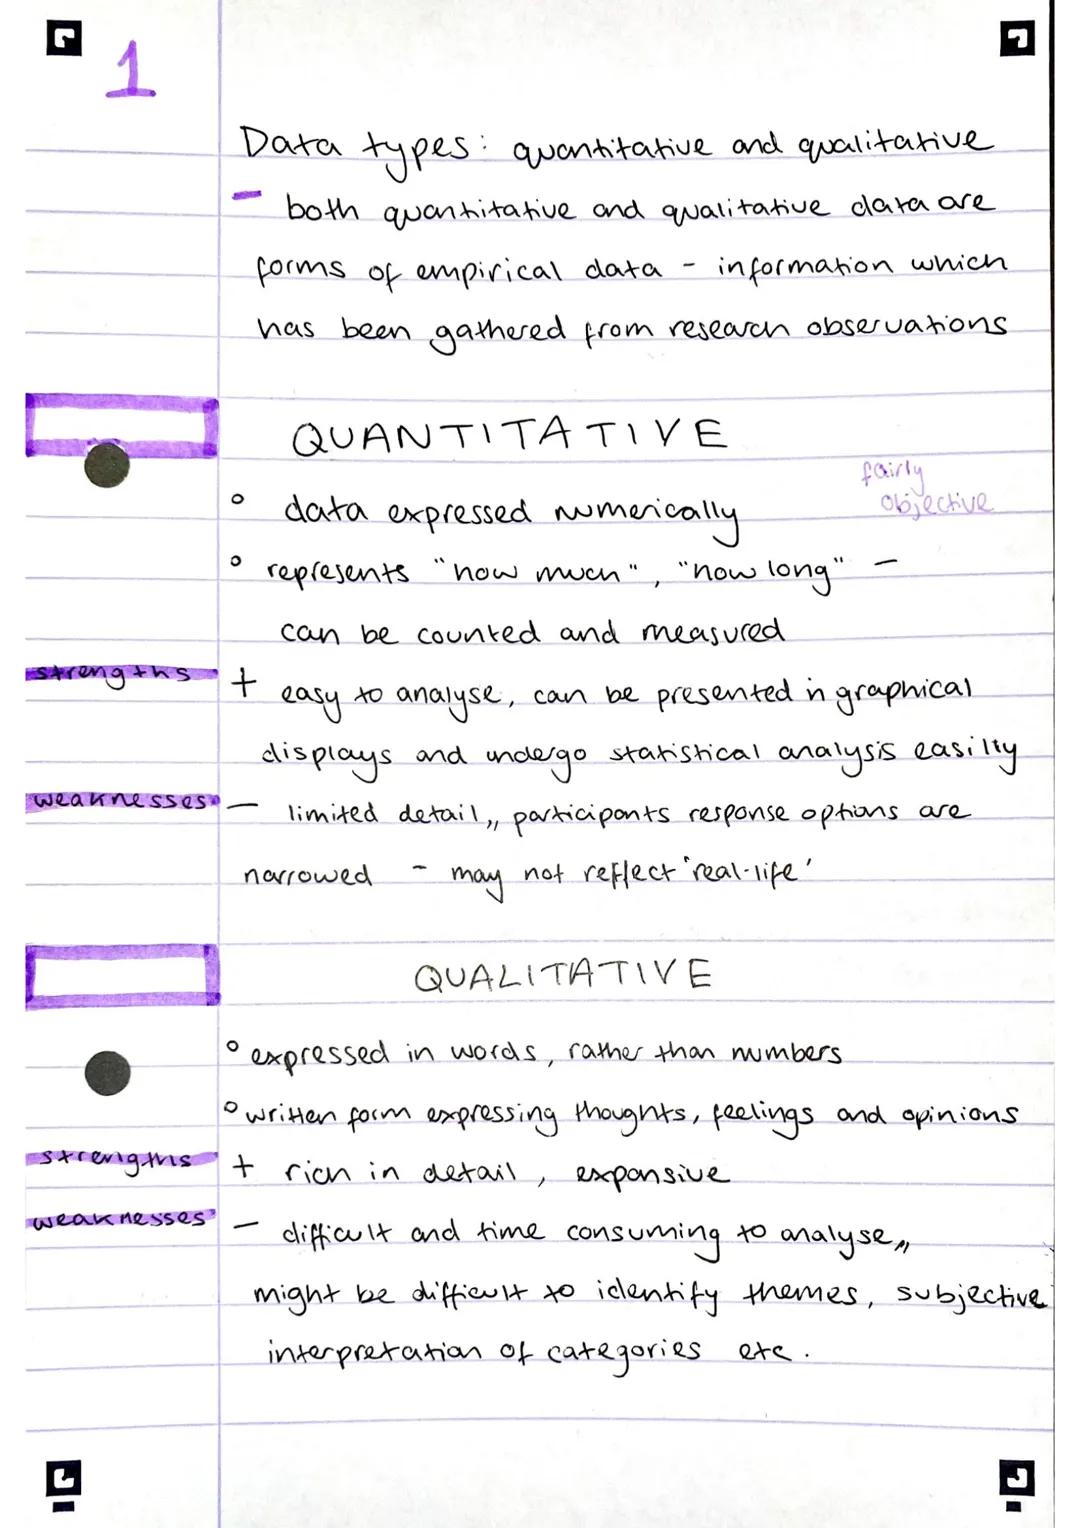 1
Data types: quantitative and qualitative
- both quantitative and qualitative data are
forms of empirical data - information which
has been gathered from research observations
QUANTITATIVE
fairly
objective
° data expressed numerically
° represents "how much", "how long" -
can be counted and measured
strengths + easy to analyse, can be presented in graphical
displays and undergo statistical analysis easilty
weaknesses - limited detail,, participants response options are
narrowed - may not reflect 'real-life'
QUALITATIVE
° expressed in words, rather than numbers
° written form expressing thoughts, feelings and opinions
strengths + rich in detail, expansive
weaknesses - difficult and time consuming to analyse,,
might be difficult to identify themes, subjective
interpretation of categories etc.